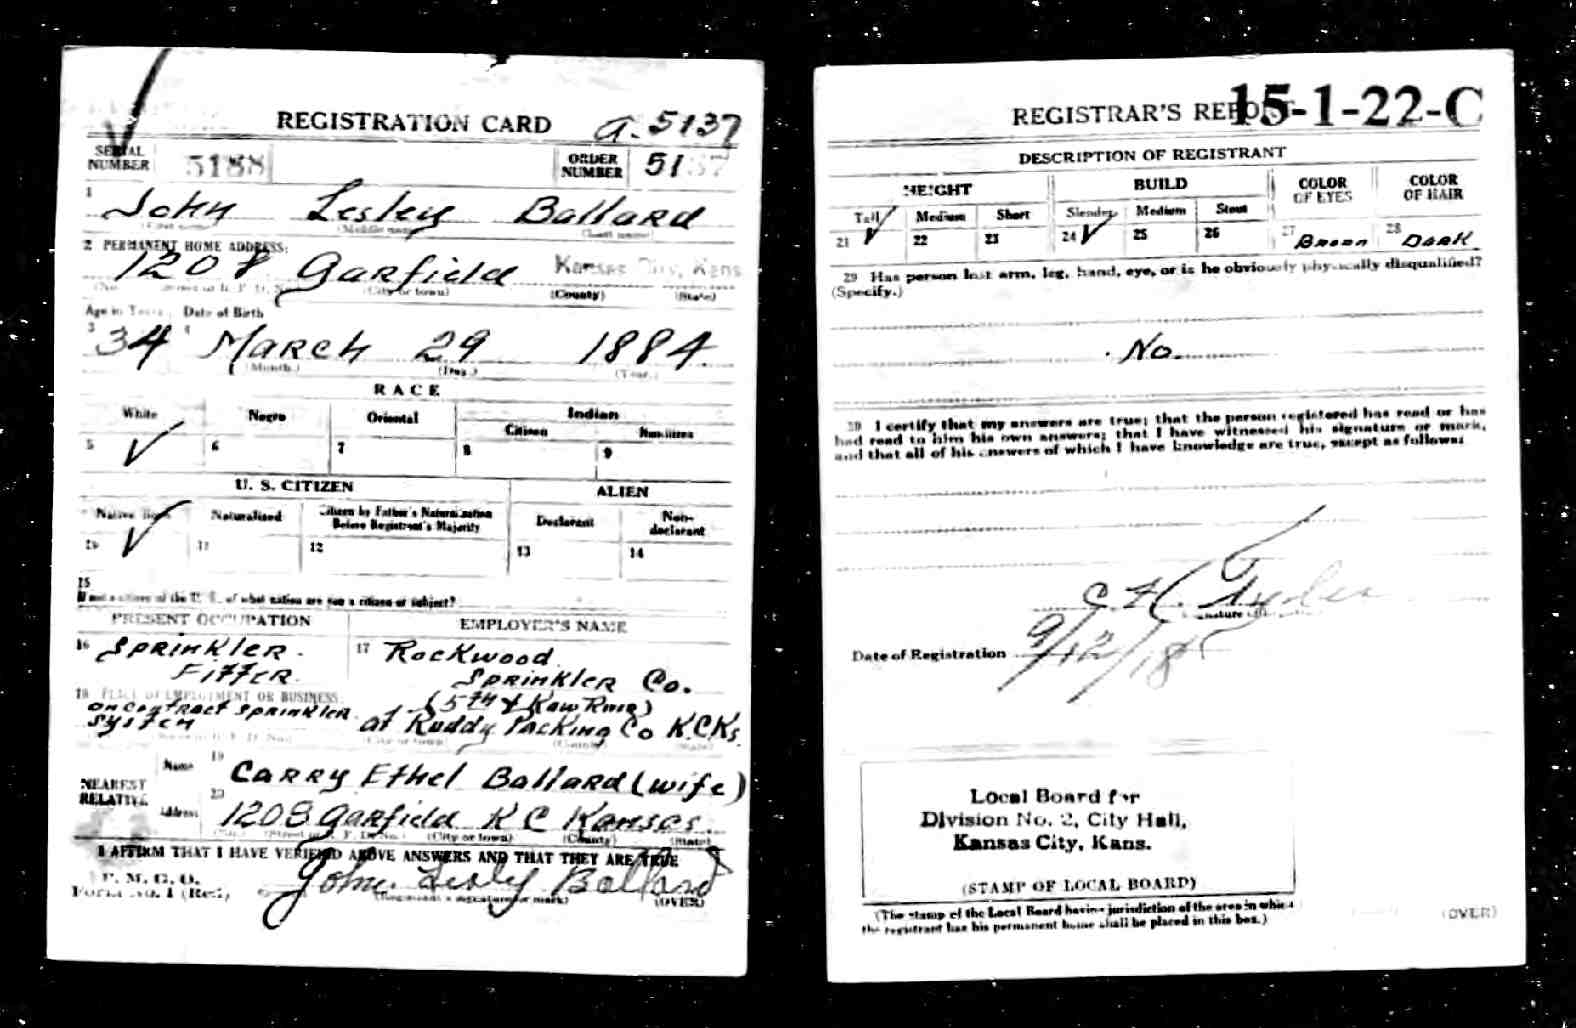 REGISTRATION CARD a. 5137
SERIAL NUMBER 5188 ORDER NUMBER 5137
1 John Lesley Ballard
(First name) (Middle name) (Last name)
2 PERMANENT HOME ADDRESS:
1208 Garfield Kansas City, Kans
(No.) (City or town) (County) (State)
Age in Years Date of Birth
3 34 4 March 29 1884
(Month.) (Day.) (Year.)
RACE
White Negro Oriental Indian
Citizen Noncitizen
5 6 7 8 9
U. S. CITIZEN ALIEN
Native Born Naturalized Citizen by Father's Naturalization Before Registrant's Majority Declarant Non-declarant
10 11 12 13 14
15
If not a citizen of the U. S., of what nation are you a citizen or subject?
PRESENT OCCUPATION EMPLOYER'S NAME
16 Sprinkler 17 Rockwood
Fitter Sprinkler Co.
18 PLACE OF EMPLOYMENT OR BUSINESS: (5th & Kaw River)
on contract sprinkler
system at Ruddy Packing Co K.C.Ks.
(City or town) (County) (State)
NEAREST RELATIVE
Name 19 Carry Ethel Ballard (wife)
Address 20 1208 Garfield K C Kansas.
(No.) (Street or R. F. D. No.) (City or town) (County) (State)
I AFFIRM THAT I HAVE VERIFIED ABOVE ANSWERS AND THAT THEY ARE TRUE
P. M. G. O.
Form No. 1 (Red) John Lesly Ballard
(Registrant's signature or mark) (OVER)
REGISTRAR'S REPORT 15-1-22-C
DESCRIPTION OF REGISTRANT
HEIGHT BUILD COLOR OF EYES COLOR OF HAIR
Tall Medium Short Slender Medium Stout
21 22 23 24 25 26 27 Brown 28 Dark
29 Has person lost arm, leg, hand, eye, or is he obviously physically disqualified?
(Specify.)
No.
30 I certify that my answers are true; that the person registered has read or has
had read to him his own answers; that I have witnessed his signature or mark,
and that all of his answers of which I have knowledge are true, except as follows:
Date of Registration 9/12/18
Local Board for
Division No. 2, City Hall,
Kansas City, Kans.
(STAMP OF LOCAL BOARD)
(The stamp of the Local Board having jurisdiction of the area in which
the registrant has his permanent home shall be placed in this box.)
(OVER)